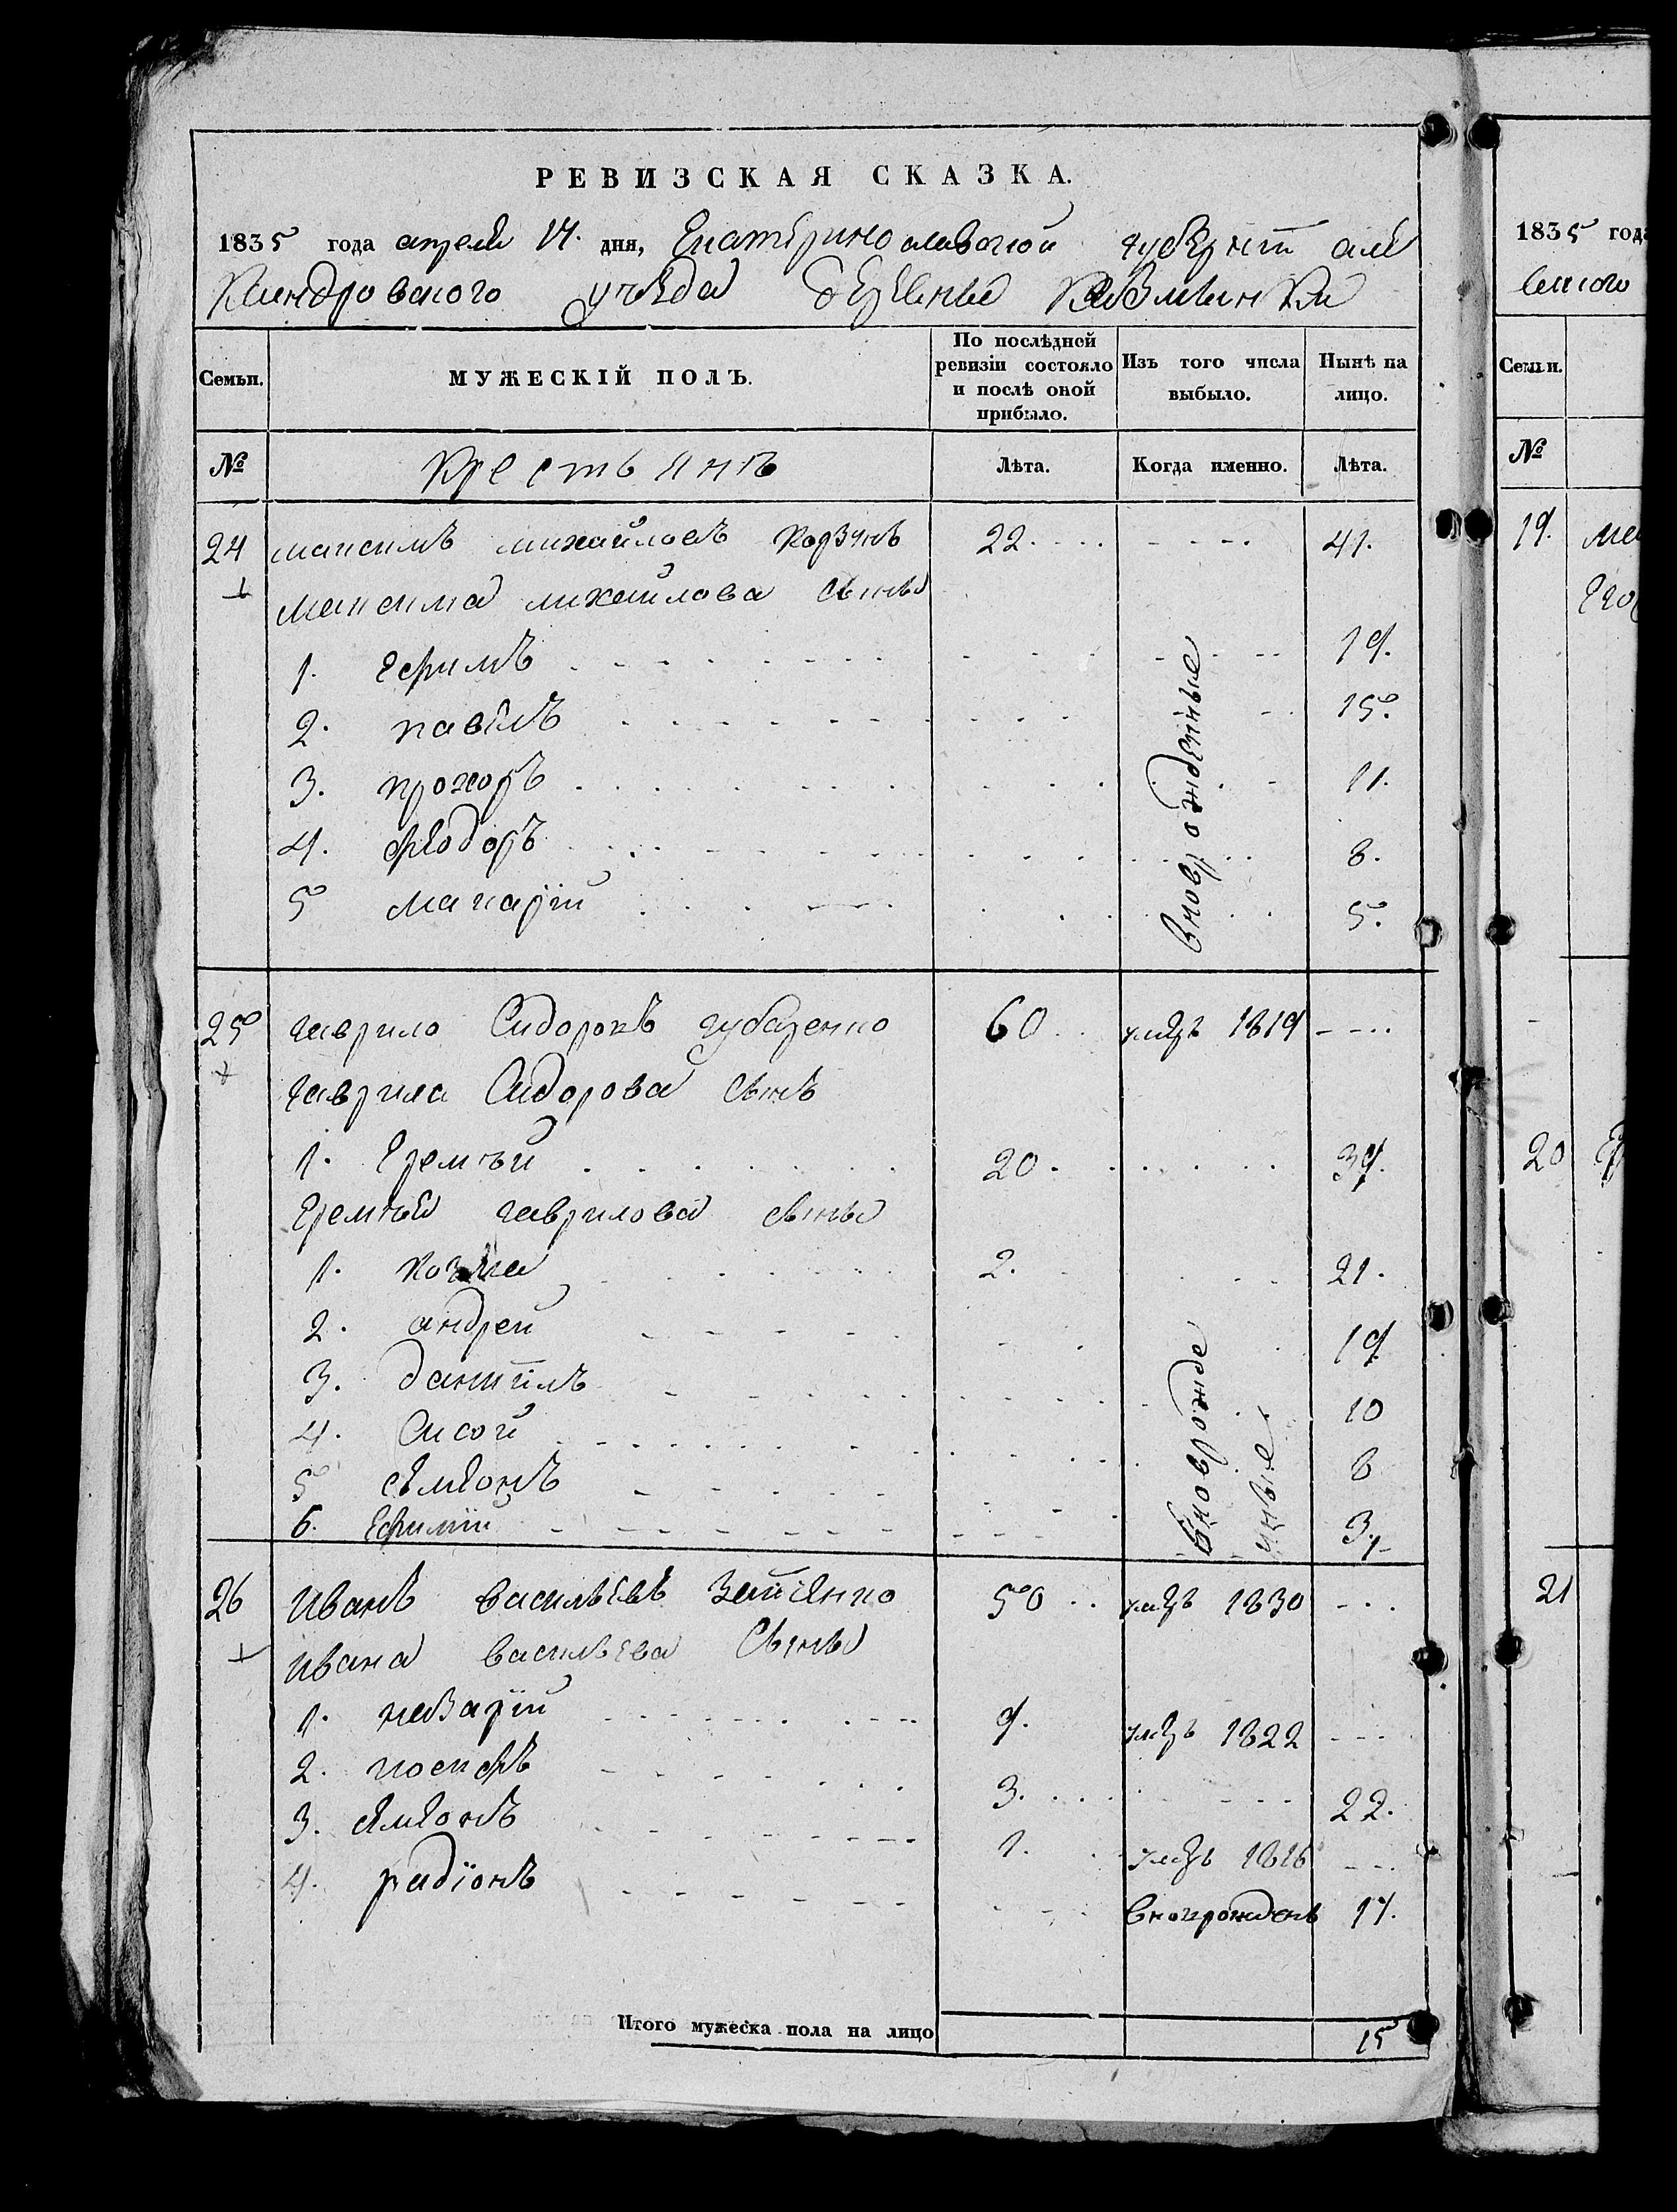 РЕВИЗСКАЯ СКАЗКА.
1835 года апреля 14. дня, Екатеринославской губернии але
ксандровского уѣзда деревни
Семьи. МУЖЕСКІЙ ПОЛЪ. По послѣдней ревизіи состояло и послѣ оной прибыло. Изъ того числа выбыло. Нынѣ на лицо.
№ Крестьянъ Лѣта. Когда именно. Лѣта.
24 максимъ михайловъ Корзунъ 22. 41.
максима михайлова сыны
1. ефимъ 19.
2. павелъ 15.
3. прохоръ 11.
4. феодоръ 8.
5 макарїй 5.
вноврожденные
25 гаврило Сидоровъ губаренко 60 умеръ 1819
гаврила Сидорова сынъ
1. Еремѣй 20. 39.
Еремѣя гаврилова сыны
1. козма 2. 21.
2. андрей 19
3. данїилъ 10
4. Сисой 8
5 семенъ
6. Ефимїй 3
вноврожде
нные
26 иванъ васильевъ 50 умеръ 1830
ивана васильева сыны
1. назарїй 9. умеръ 1822
2. иосифъ 3. 22.
3. семенъ 1. умеръ 1816
4. радїонъ вноврожденъ 17.
Итого мужеска пола на лицо 15
1835 года
Семьи.
№
19.
20
21